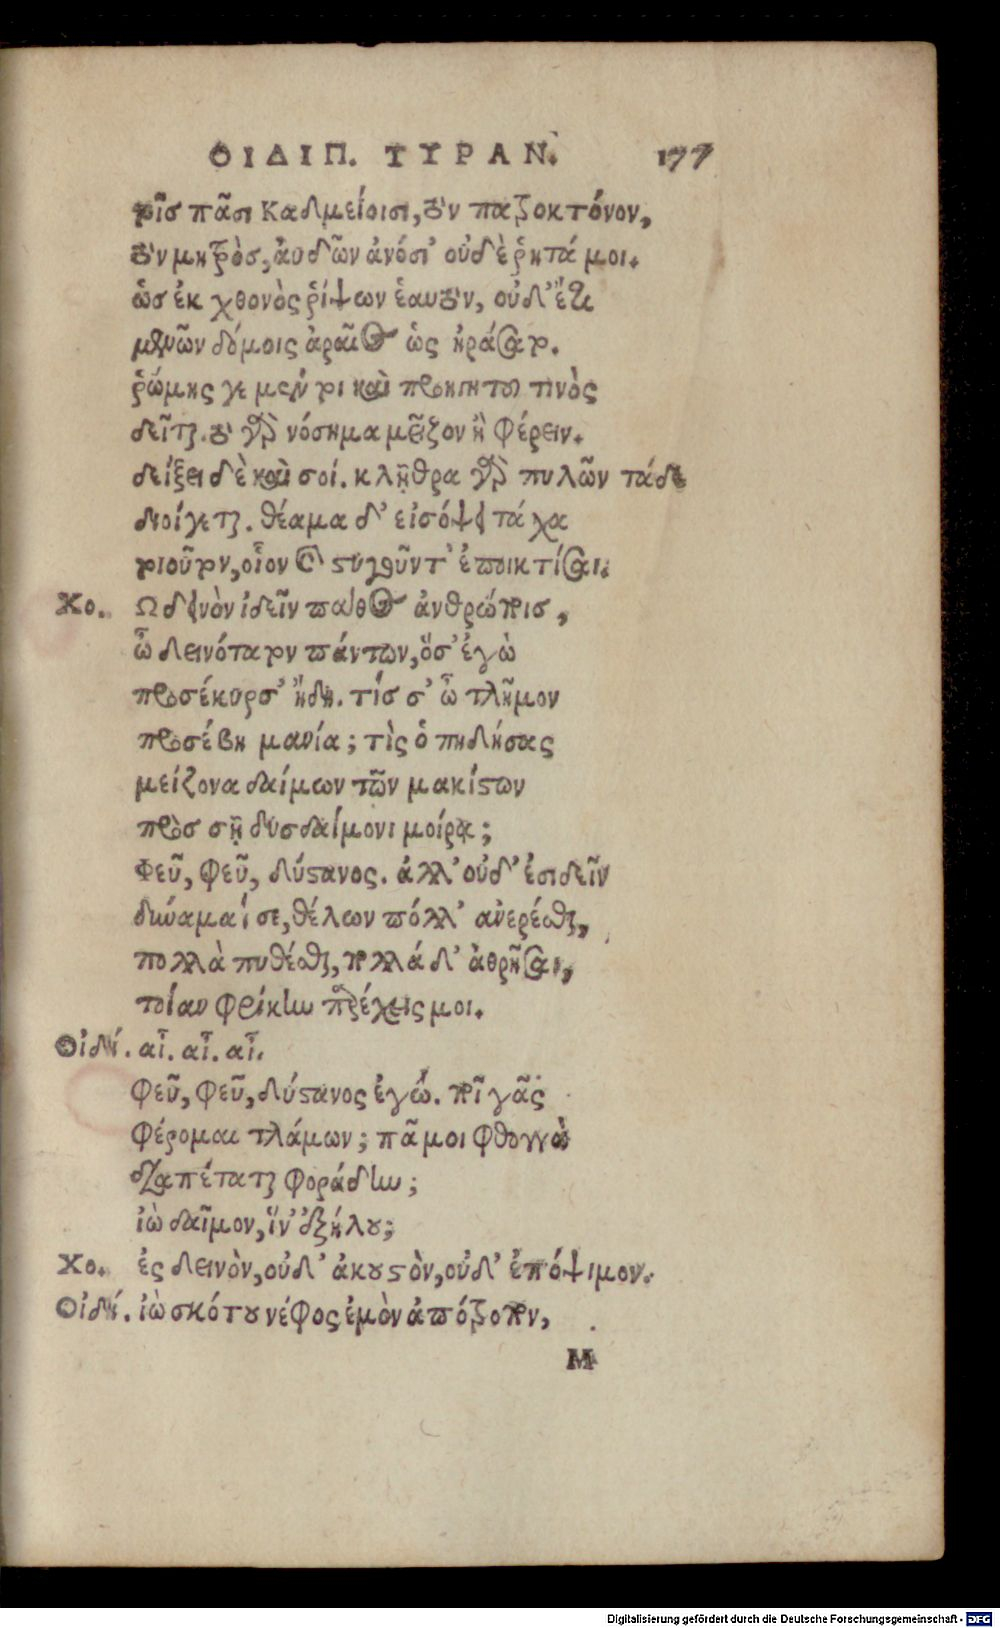 ΟΙΔΙΠ. ΤΥΡΑΝ. 177
τοῖς πᾶσι Καδμείοισι, τὸν πατροκτόνον,
τὸν μητρὸς, αὐδῶν ἀνόσι' οὐδὲ ῥητά μοι.
ὡς ἐκ χθονὸς ῥίψων ἑαυτὸν, οὐδ' ἔτι
μενῶν δόμοις ἀραῖος ὡς ἠράσατο.
ῥώμης γε μέν τοι καὶ προηγητοῦ τινὸς
δεῖται. τὸ γὰρ νόσημα μεῖζον ἢ φέρειν.
δείξει δὲ καὶ σοί. κλῇθρα γὰρ πυλῶν τάδε
διοίγεται. θέαμα δ' εἰσόψει τάχα
τοιοῦτον, οἷον καὶ στυγοῦντ' ἐποικτίσαι.
Χο. Ω δεινὸν ἰδεῖν πάθος ἀνθρώποις,
ὦ δεινότατον πάντων, ὅσ' ἐγὼ
προσέκυρσ' ἤδη. τίς σ' ὦ τλῆμον
προσέβη μανία; τὶς ὁ πηδήσας
μείζονα δαίμων τῶν μακίστων
πρὸς σῇ δυσδαίμονι μοίρᾳ;
Φεῦ, φεῦ, δύστανος. ἀλλ' οὐδ' ἐσιδεῖν
δύναμαί σε, θέλων πόλλ' ἀνερέσθαι,
πολλὰ πυθέσθαι, πολλά δ' ἀθρῆσαι,
τοίαν φρίκην παρέχεις μοι.
Οἰδί. αἶ. αἶ. αἶ.
Φεῦ, φεῦ, δύστανος ἐγώ. ποῖ γᾶς
φέρομαι τλάμων; πᾶ μοι φθογγὰ
διαπέταται φοράδην;
ἰὼ δαῖμον, ἵν' ἐξήλου;
Χο. ἐς δεινὸν, οὐδ' ἀκουστὸν, οὐδ' ἐπόψιμον.
Οἰδί. ἰὼ σκότου νέφος ἐμὸν ἀπότροπον,
Μ
Digitalisierung gefördert durch die Deutsche Forschungsgemeinschaft - DFG